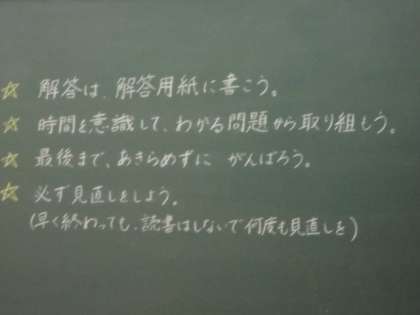 ☆ 解答は、解答用紙に書こう。
☆ 時間を意識して、わかる問題から取り組もう。
☆ 最後まで、あきらめずに がんばろう。
☆ 必ず見直しをしよう。
(早く終わっても、読書はしないで何度も見直しを)